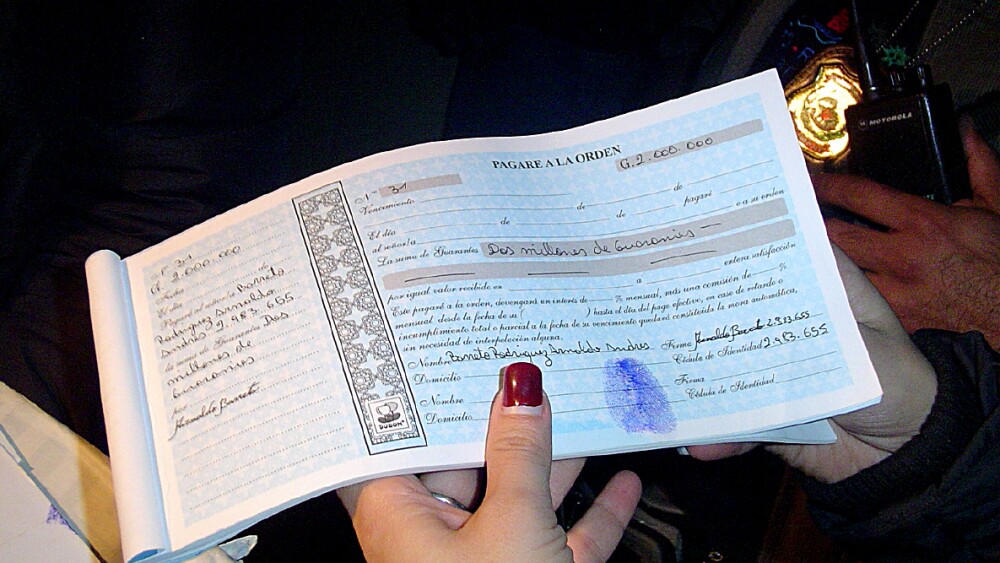 Nº 31
G. 2.000.000
Barreto
Rodriguez Arnoldo
Andrés 2.983.655
la suma de Guaraníes Dos
millones de
Guaraníes
PAGARE A LA ORDEN
G. 2.000.000
Nº 31
Vencimiento de de
El día de de pagaré
al señor/a o a su orden
La suma de Guaraníes Dos millones de Guaraníes
por igual valor recibido en a entera satisfacción
Este pagaré a la orden, devengará un interés de % mensual, más una comisión de %
mensual, desde la fecha de su ( ) hasta el día del pago efectivo, en caso de retardo o
incumplimiento total o parcial a la fecha de su vencimiento quedará constituída la mora automática,
sin necesidad de interpelación alguna.
Nombre Barreto Rodriguez Arnoldo Andres Firma Arnoldo Barreto 2.983.655
Domicilio Cédula de Identidad 2.983.655
Nombre Firma
Domicilio Cédula de Identidad
DUGOM
MOTOROLA